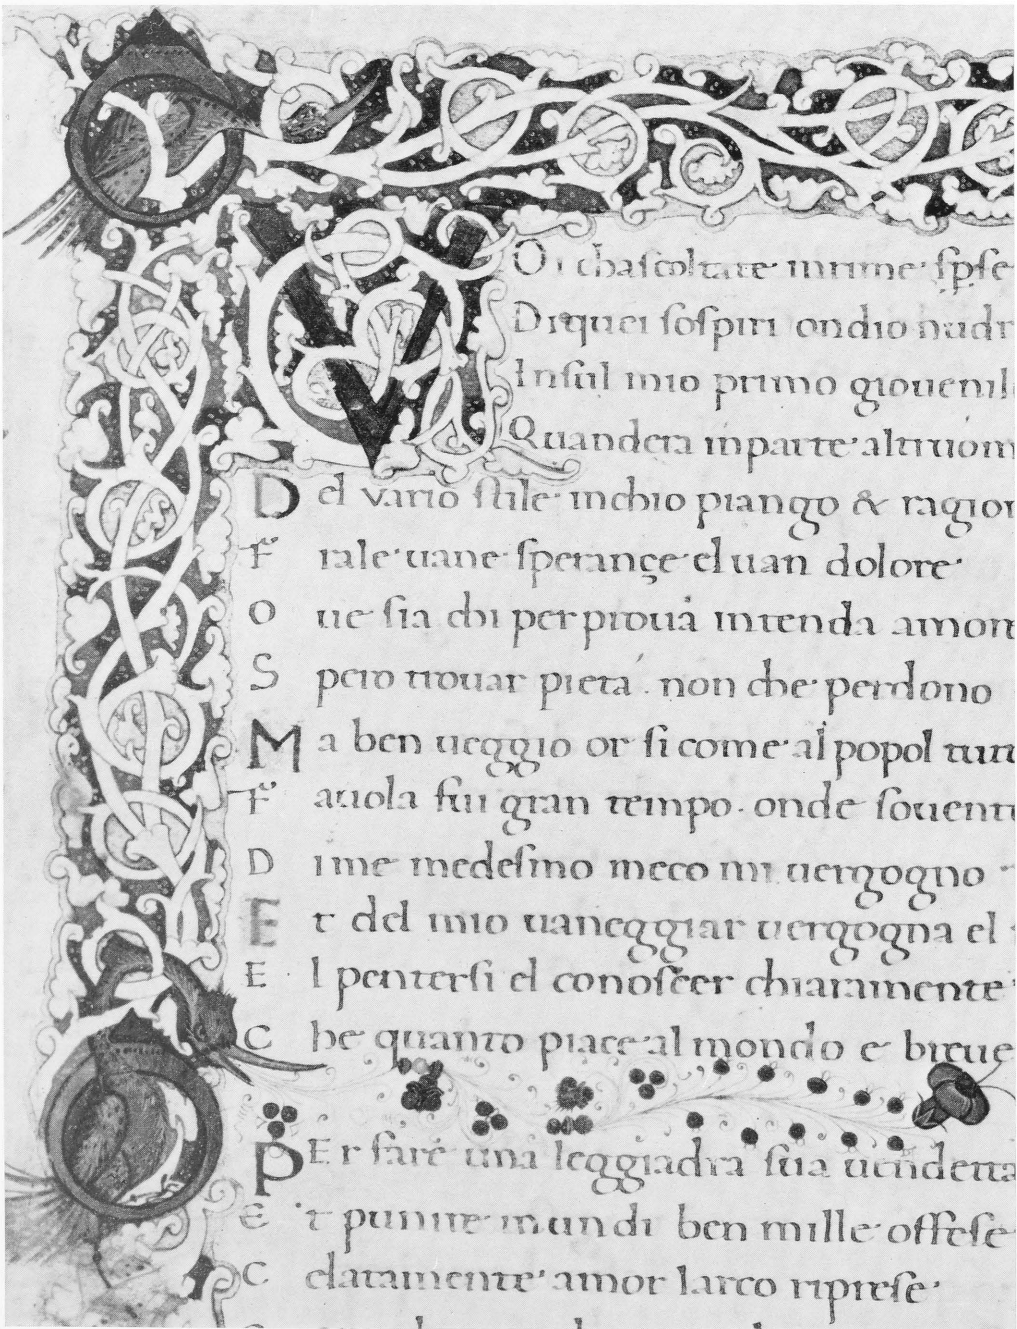 VOi chascoltate inrime spse
Diquei sospiri ondio nudr
Insul mio primo giovenil
Quandera inparte altruom
Del vario stile inchio piango & ragion
Frale uane sperançe el uan dolore
Oue sia chi per proua intenda amor
Spero trouar pietà. non che perdono
Ma ben ueggio or si come al popol tutt
Fauola fui gran tempo. onde souent
Dime medesmo meco mi uergogno
Et del mio uaneggiar uergogna el
El pentersi el conoscer chiaramente
Che quanto piace al mondo e breue
PEr fare una leggiadra sua uendetta
Et punire inun di ben mille offese
Celatamente amor larco riprese